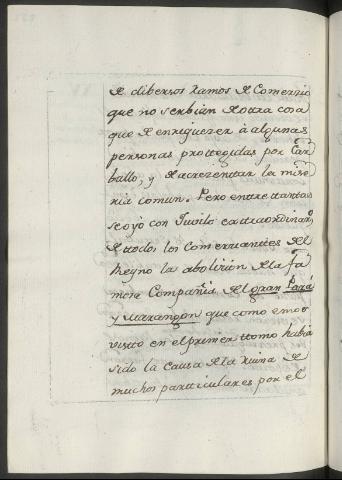 de dibersos ramos de Comerzio
que no serbian de otra cosa
que de enriquezer à algunas
personas prottegidas por Car
ballo, y de acrezentar la mise
ria comun. Pero entre tanto
se oyó con Jubilo extraordinarº
de ttodos los Comerciantes del
Reyno la abolizion de la fa
mosa Compañia del gran Pará
y Marangon que como emos
visto en el primer ttomo habia
sido la causa de la ruina de
muchos particulares por el